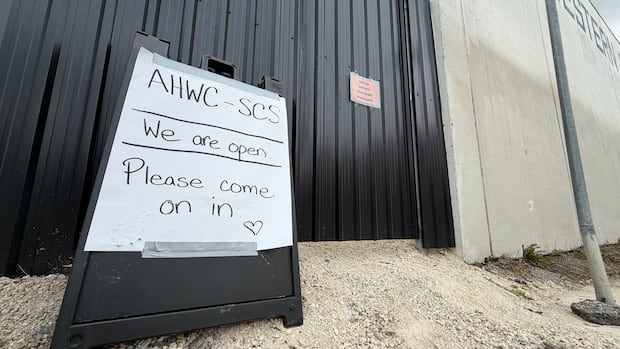 AHWC-SCS
We are open.
Please come
on in ♡
ESTERN